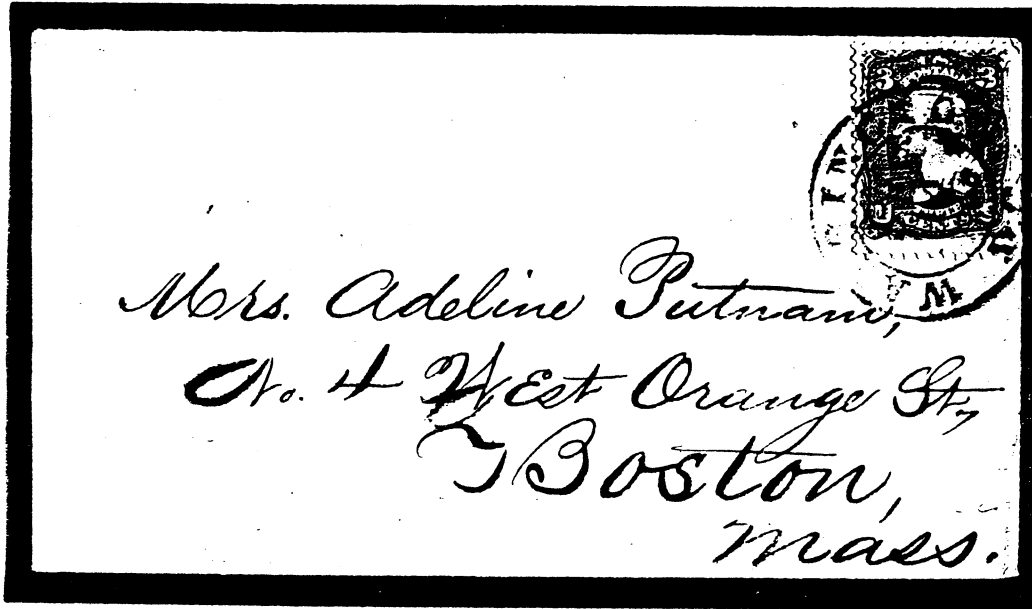 Mrs. Adeline Putnam,
No. 4 West Orange St,
Boston,
Mass.